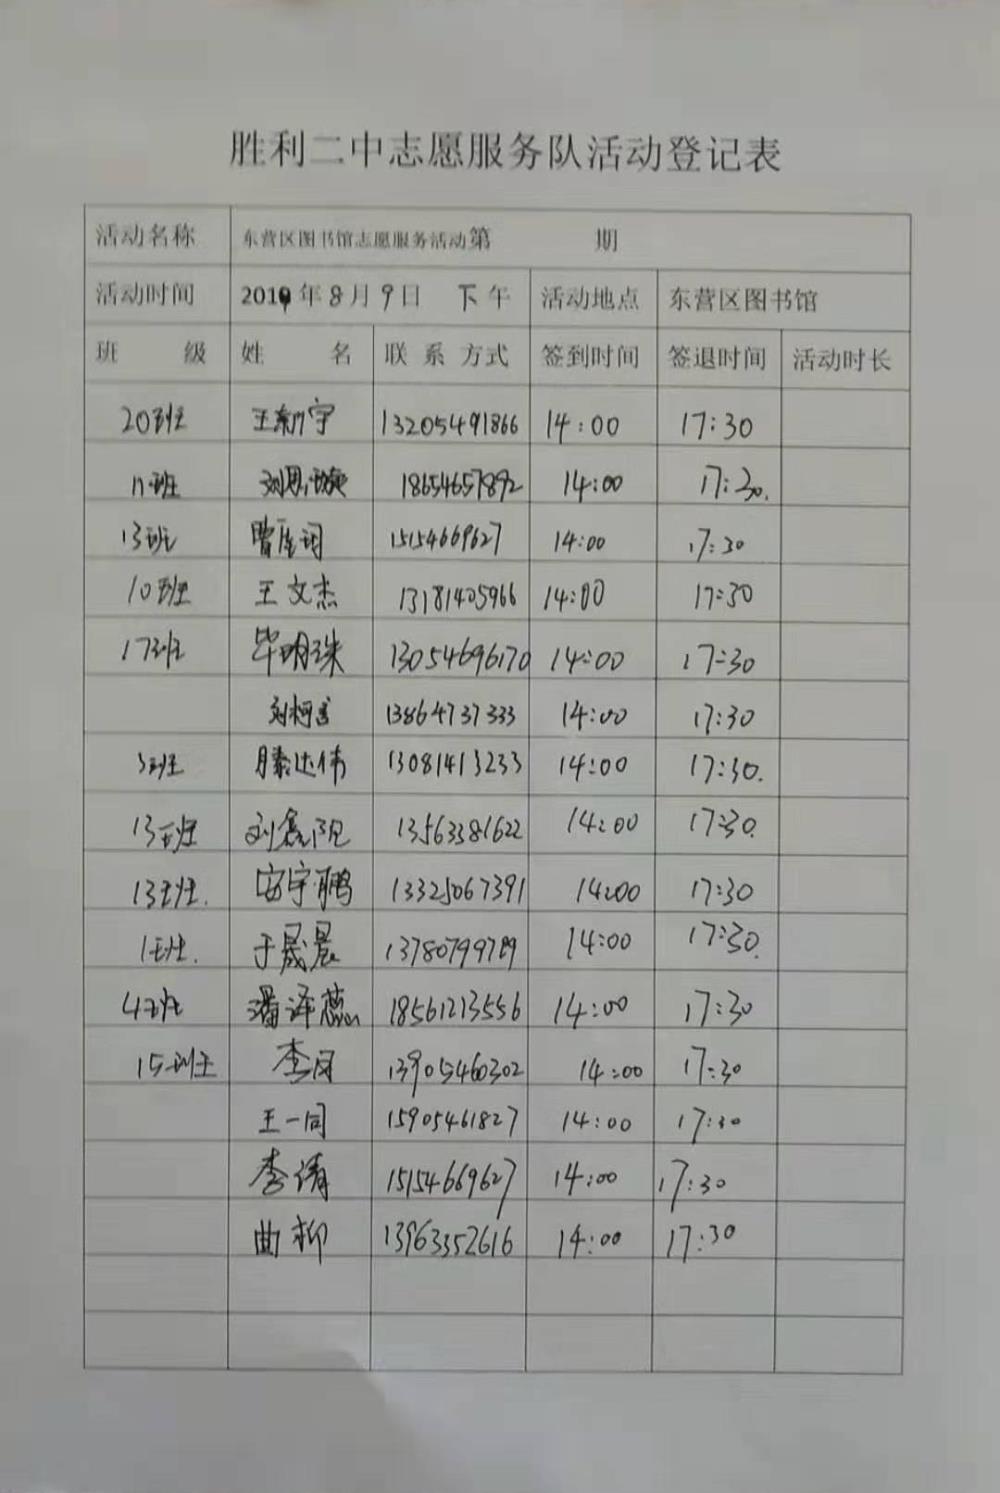 胜利二中志愿服务队活动登记表
活动名称 东营区图书馆志愿服务活动第 期
活动时间 2019年8月9日 下午 活动地点 东营区图书馆
班 级 姓 名 联系方式 签到时间 签退时间 活动时长
20班 王新宇 13205491866 14:00 17:30
11班 刘思璇 18654657892 14:00 17:30.
13班 曹 15154669627 14:00 17:30
10班 王文杰 13181405966 14:00 17:30
17班 毕明珠 13054696170 14:00 17:30
刘柯言 13864737333 14:00 17:30
3班 滕达伟 13081413233 14:00 17:30.
13班 刘鑫阳 13563381622 14:00 17:30.
13班. 安宇鹏 13325067391 14:00 17:30
1班. 于晟晨 13780799789 14:00 17:30.
4班 潘泽蕊 18561213556 14:00 17:30
15班 李闵 13905460302 14:00 17:30
王一同 15905461827 14:00 17:30
李倩 15154669627 14:00 17:30
曲柳 13963352616 14:00 17:30